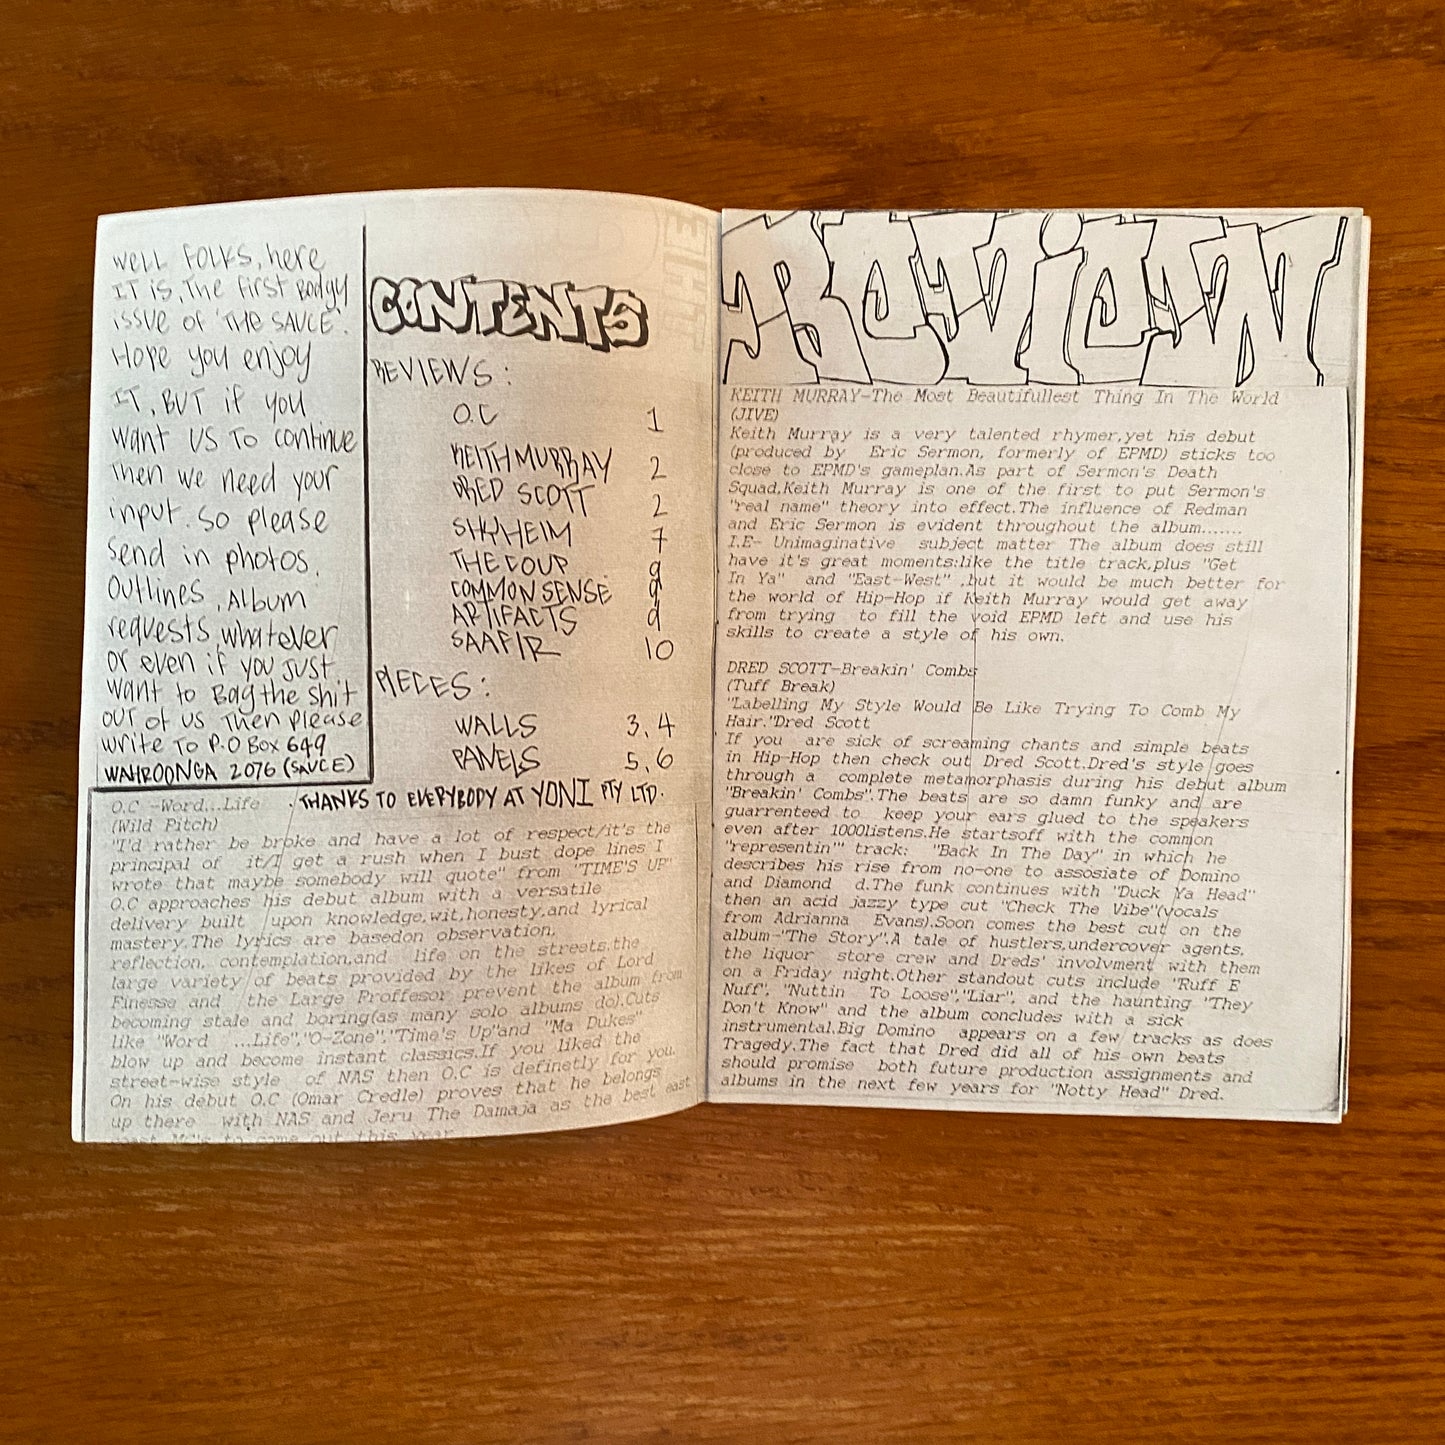 WELL FOLKS, here
IT is, The First Bodgy
issue of 'THE SAUCE'.
Hope you enjoy
IT, BUT if you
want us to continue
Then we need your
input. So please
send in photos,
outlines, Album
requests, whatever
or even if you just
want to Bag the shit
out of us Then please
write to P.O Box 649
WAHROONGA 2076 (SAUCE)
CONTENTS
REVIEWS:
O.C 1
KEITH MURRAY 2
DRED SCOTT 2
SHYHEIM 7
THE COUP 9
COMMON SENSE 9
ARTIFACTS 9
SAAFIR 10
PIECES:
WALLS 3,4
PANELS 5,6
. THANKS TO EVERYBODY AT YONI PTY LTD.
O.C -Word...Life
(Wild Pitch)
"I'd rather be broke and have a lot of respect/it's the
principal of it/I get a rush when I bust dope lines I
wrote that maybe somebody will quote" from "TIME'S UP"
O.C approaches his debut album with a versatile
delivery built upon knowledge,wit,honesty,and lyrical
mastery.The lyrics are basedon observation,
reflection, contemplation,and life on the streets.the
large variety of beats provided by the likes of Lord
Finesse and the Large Proffesor prevent the album from
becoming stale and boring(as many solo albums do).Cuts
like "Word ...Life","O-Zone","Time's Up"and "Ma Dukes"
blow up and become instant classics.If you liked the
street-wise style of NAS then O.C is definetly for you.
On his debut O.C (Omar Credle) proves that he belongs
up there with NAS and Jeru The Damaja as the best east
coast MC's to come out this year
KEITH MURRAY-The Most Beautifullest Thing In The World
(JIVE)
Keith Murray is a very talented rhymer,yet his debut
(produced by Eric Sermon, formerly of EPMD) sticks too
close to EPMD's gameplan.As part of Sermon's Death
Squad,Keith Murray is one of the first to put Sermon's
"real name" theory into effect.The influence of Redman
and Eric Sermon is evident throughout the album.......
I.E- Unimaginative subject matter The album does still
have it's great moments:like the title track,plus "Get
In Ya" and "East-West" ,but it would be much better for
the world of Hip-Hop if Keith Murray would get away
from trying to fill the void EPMD left and use his
skills to create a style of his own.
DRED SCOTT-Breakin' Combs
(Tuff Break)
"Labelling My Style Would Be Like Trying To Comb My
Hair."Dred Scott
If you are sick of screaming chants and simple beats
in Hip-Hop then check out Dred Scott.Dred's style goes
through a complete metamorphasis during his debut album
"Breakin' Combs".The beats are so damn funky and are
guarrenteed to keep your ears glued to the speakers
even after 1000listens.He startsoff with the common
"representin'" track: "Back In The Day" in which he
describes his rise from no-one to assosiate of Domino
and Diamond d.The funk continues with "Duck Ya Head"
then an acid jazzy type cut "Check The Vibe"(vocals
from Adrianna Evans).Soon comes the best cut on the
album-"The Story".A tale of hustlers,undercover agents,
the liquor store crew and Dreds' involvment with them
on a Friday night.Other standout cuts include "Ruff E
Nuff", "Nuttin To Loose","Liar", and the haunting "They
Don't Know" and the album concludes with a sick
instrumental.Big Domino appears on a few tracks as does
Tragedy.The fact that Dred did all of his own beats
should promise both future production assignments and
albums in the next few years for "Notty Head" Dred.